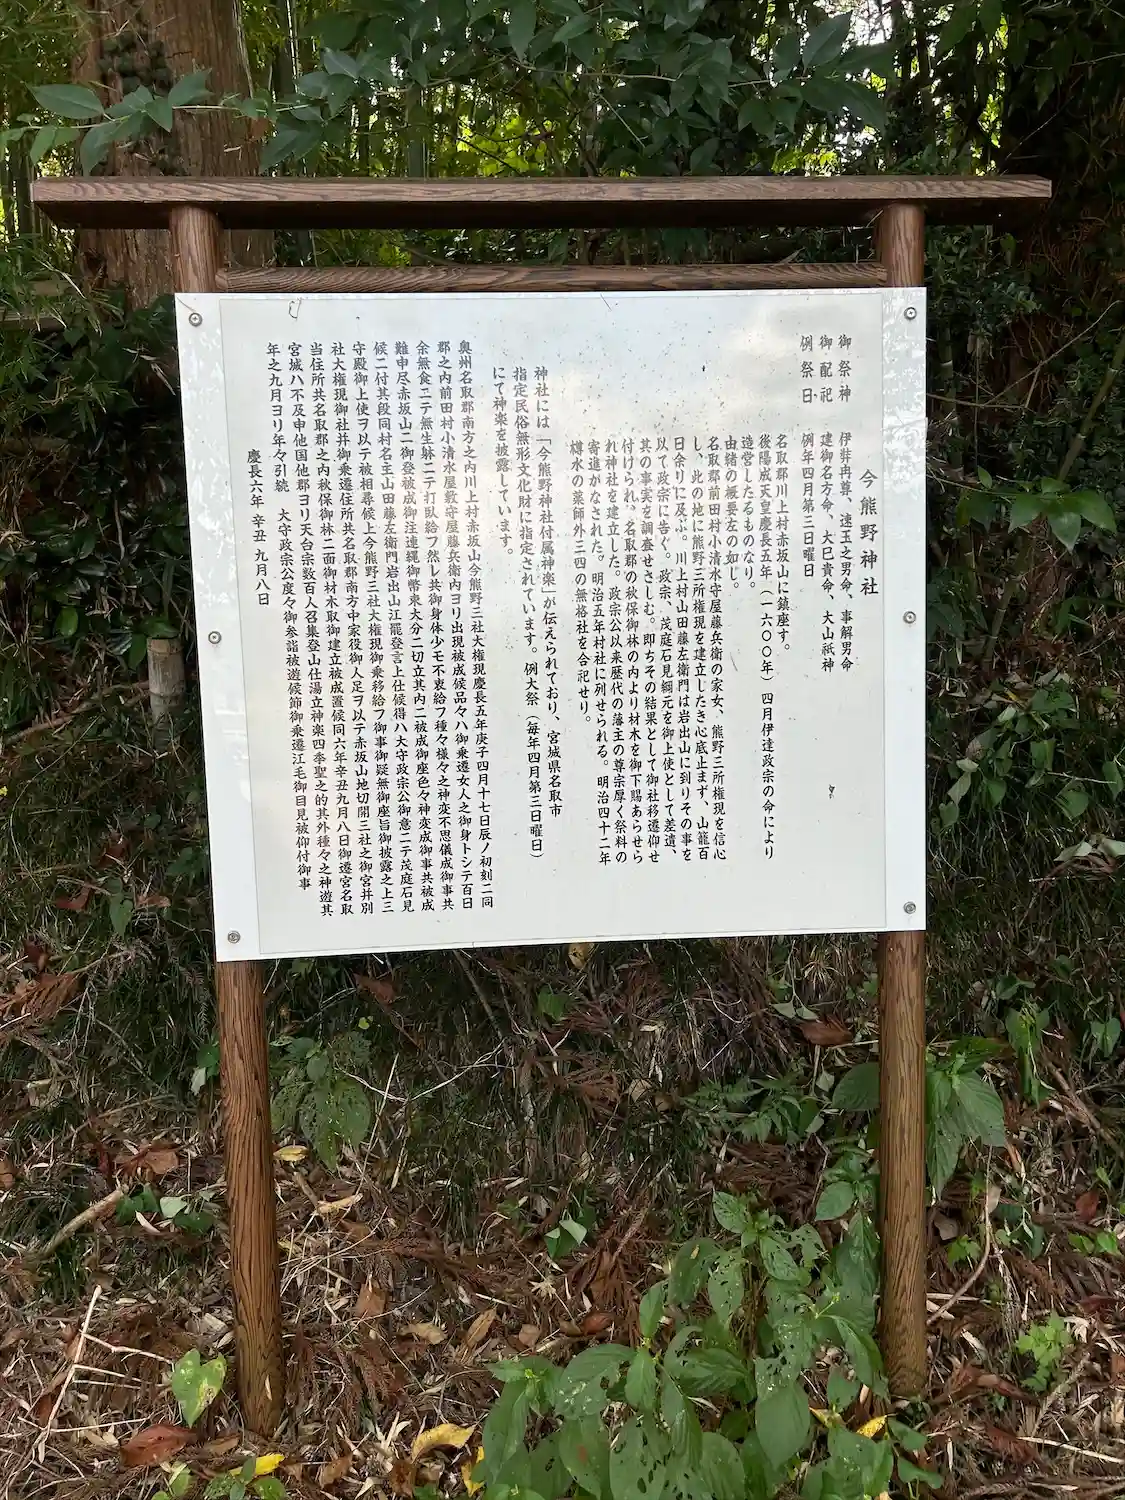 今熊野神社
御祭神　伊弉冉尊、速玉之男命、事解男命
御配祀　建御名方命、大巳貴命、大山祇神
例祭日　例年四月第三日曜日
名取郡川上村赤坂山に鎮座す。
後陽成天皇慶長五年（一六〇〇年）四月伊達政宗の命により
造営したるものなり。
由緒の概要左の如し。
名取郡前田村小清水守屋藤兵衛の家女、熊野三所権現を信心
し、此の地に熊野三所権現を建立したき心底止まず、山籠百
日余りに及ぶ。川上村山田藤左衛門は岩出山に到りその事を
以て政宗に告ぐ。政宗、茂庭石見綱元を御上使として差遣、
其の事実を調査せさしむ。即ちその結果として御社移遷仰せ
付けられ、名取郡の秋保御林の内より材木を御下賜あらせら
れ神社を建立した。政宗公以来歴代の藩主の尊宗厚く祭料の
寄進がなされた。明治五年村社に列せられる。明治四十二年
樽水の薬師外三四の無格社を合祀せり。
神社には「今熊野神社付属神楽」が伝えられており、宮城県名取市
指定民俗無形文化財に指定されています。例大祭（毎年四月第三日曜日）
にて神楽を披露しています。
奥州名取郡南方之内川上村赤坂山今熊野三社大権現慶長五年庚子四月十七日辰ノ初刻二同
郡之内前田村小清水屋敷守屋藤兵衛内ヨリ出現被成候品々ハ御乗遷女人之御身トシテ百日
余無食二テ無生躰二テ打臥給フ然し共御身体少モ不衰給フ種々様々之神変不思儀成御事共
難申尽赤坂山二御登被成御注連縄御幣束大分二切立其内二被成御座色々神変成御事共被成
候二付其段同村名主山田藤左衛門岩出山江罷登言上仕候得ハ大守政宗公御意二テ茂庭石見
守殿御上使ヲ以テ被相尋候上今熊野三社大権現御乗移給フ御事御疑無御座旨御披露之上三
社大権現御社并御乗遷住所共名取郡南方中家役御人足ヲ以テ赤坂山地切開三社之御宮并別
当住所共名取郡之内秋保御林二面御材木取御建立被成置候同六年辛丑九月八日御遷宮名取
宮城ハ不及申他国他郡ヨリ天台宗数百人召集登山仕湯立神楽四奉聖之的其外種々之神遊其
年之九月ヨリ年々引続　大守政宗公度々御参詣被遊候節御乗遷江毛御目見被仰付御事
慶長六年 辛丑 九月八日